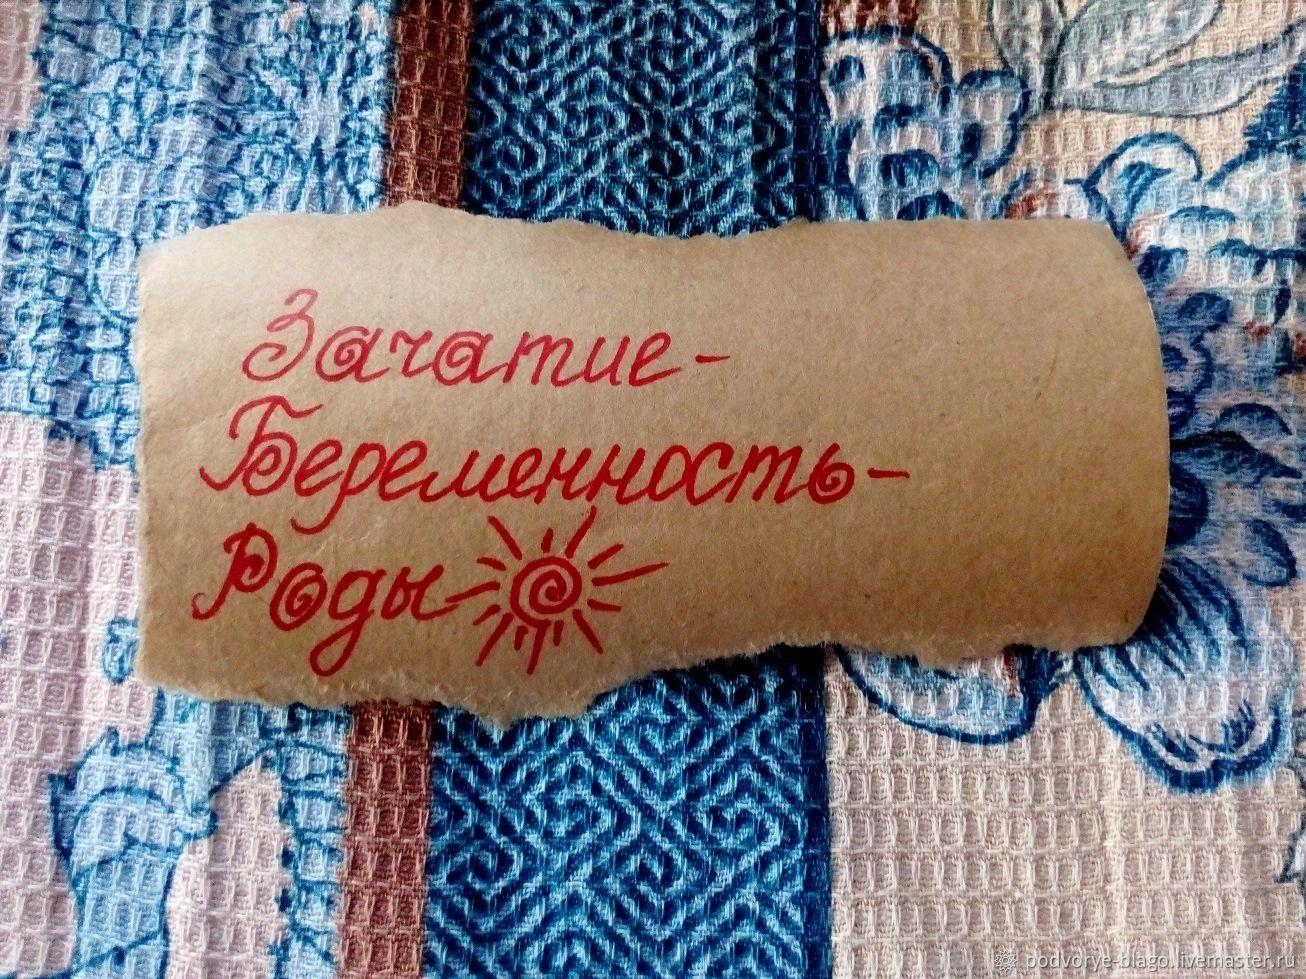 Зачатие-
Беременность-
Роды
podvorye-blago.livemaster.ru